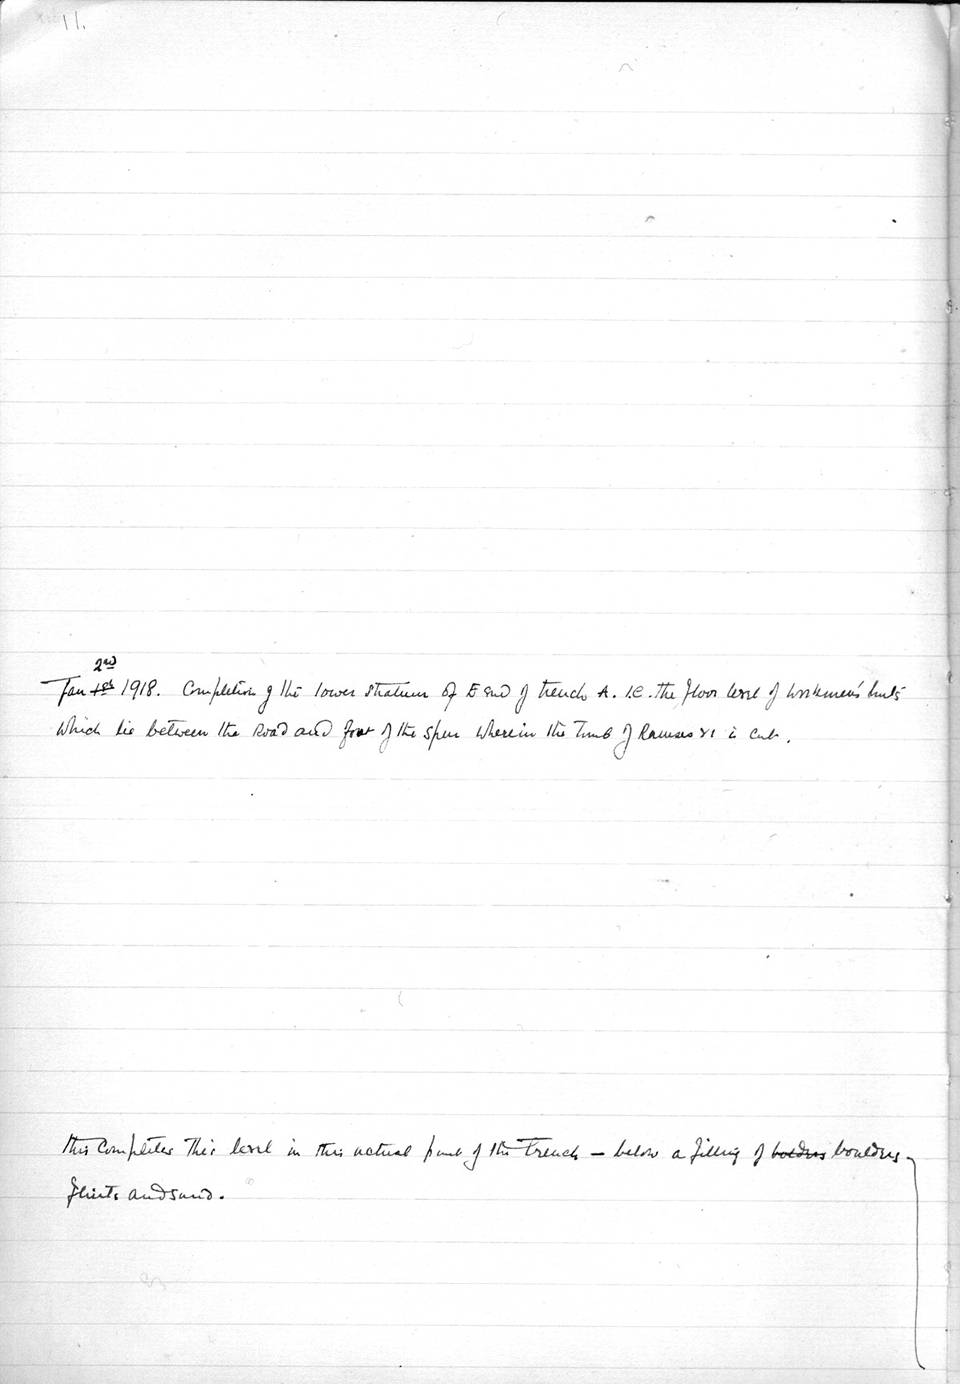 11.
2nd
Jan 1st 1918. Completion of the lower stratum of E end of trench A. i.e. the floor level of workmen's huts
which lie between the road and foot of the spur wherein the Tomb of Ramses VI is cut.
This completes this level in this actual part of the Trench — below a filling of boldrs bouldrs
flints and sand.